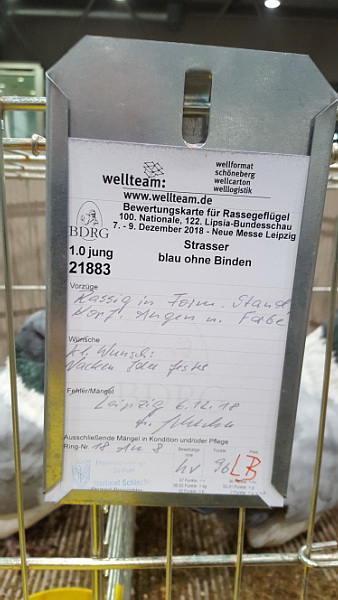 wellteam:
wellformat
schöneberg
wellcarton
welllogistik
www.wellteam.de
Bewertungskarte für Rassegeflügel
100. Nationale, 122. Lipsia-Bundesschau
7. - 9. Dezember 2018 - Neue Messe Leipzig
BDRG
Strasser
1.0 jung
blau ohne Binden
21883
Vorzüge
Rassig in Form, Stand
Kopf, Augen u. Farbe
Wünsche
kl. Wunsch:
Nacken
Fehler/Mängel
Leipzig 6.12.18
Ausschließende Mängel in Kondition und/oder Pflege
Ring-Nr. 18
Punkte
hv 96 LB